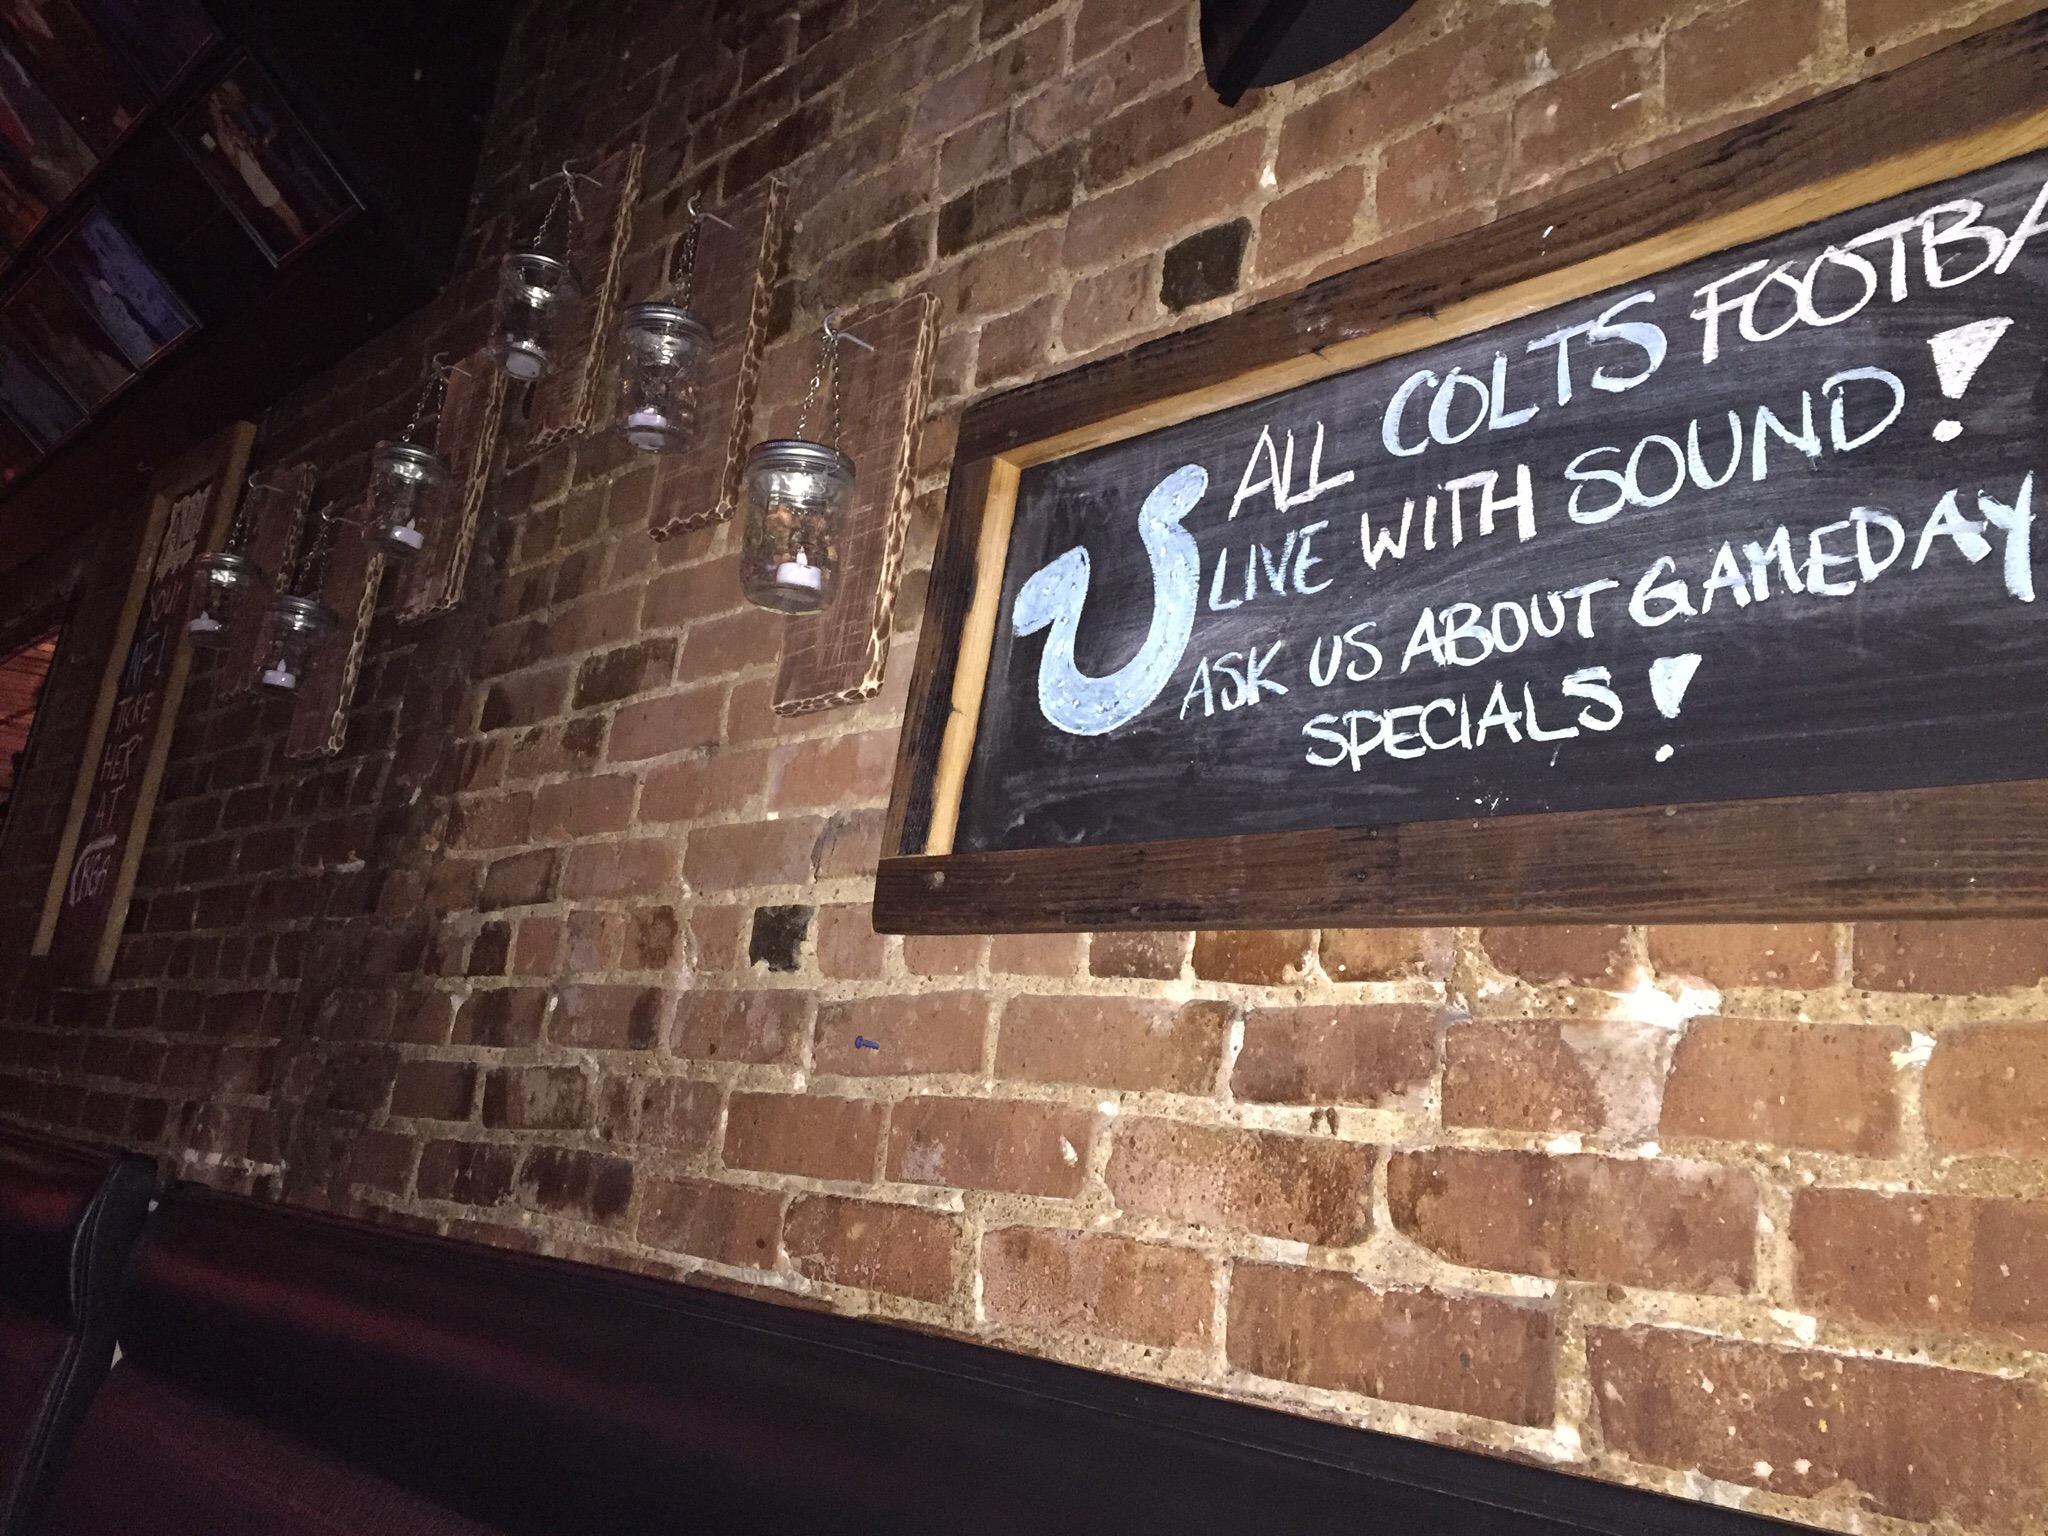 ALL COLTS FOOTBA
LIVE WITH SOUND!
ASK US ABOUT GAMEDAY
SPECIALS!
HER
AT